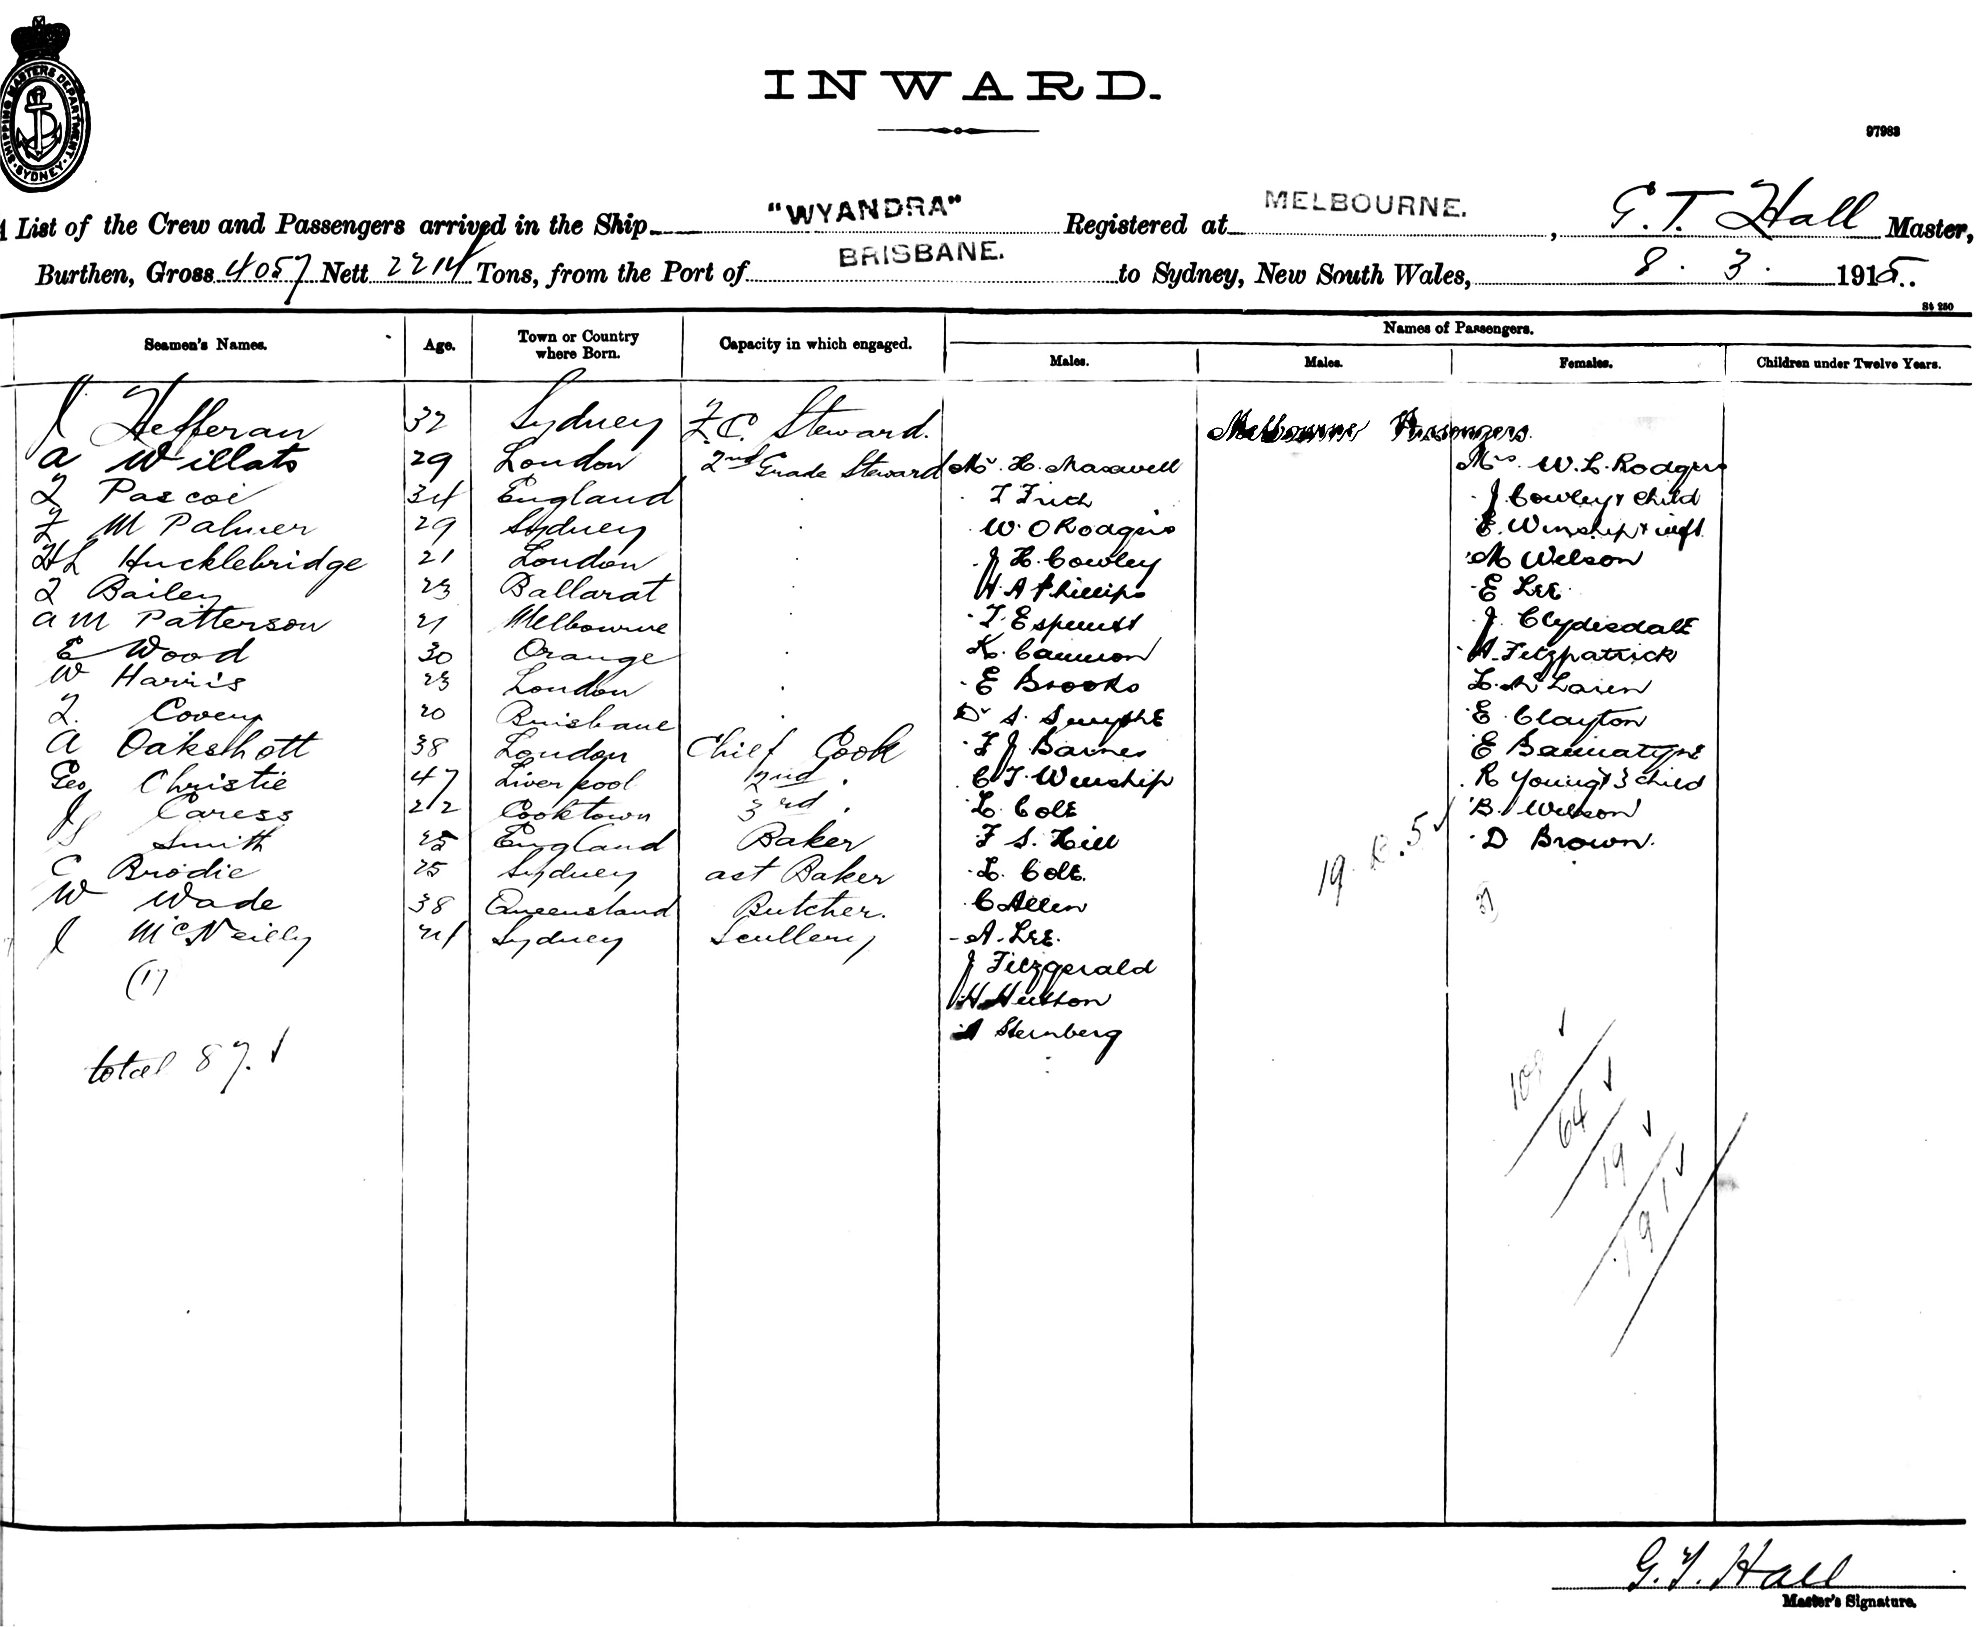 SHIPPING MASTERS DEPARTMENT · SYDNEY ·
INWARD.
97983
A List of the Crew and Passengers arrived in the Ship "WYANDRA" Registered at MELBOURNE. , G. T. Hall Master,
Burthen, Gross 4057 Nett 2214 Tons, from the Port of BRISBANE. to Sydney, New South Wales, 8. 3. 1915.
St 250
Seamen's Names. Age. Town or Country where Born. Capacity in which engaged. Names of Passengers.
Males. Males. Females. Children under Twelve Years.
J Hefferan 32 Sydney F.C. Steward. Melbourne Passengers
A Willats 29 London 2nd Grade Steward Mr H. Maxwell Mrs W. L. Rodgers
Pascoe 34 England W. O Rodgers J Cowley & Child
F M Palmer 29 Sydney J H. Cowley E. Winship & inft
HL Hucklebridge 21 London H A Phillips M Wilson
Bailey 23 Ballarat E LEE
A M Patterson 21 Melbourne J. Clydesdale
E Wood 30 Orange K. Cannon A. Fitzpatrick
W Harris 23 London E Brooks L. McLaren
Covey 20 Brisbane Dr S. Smythe E Clayton
A Oakshott 38 London Chief Cook F J Barnes E Bannatyne
Geo Christie 47 Liverpool 2nd . C T. Winship R Young & 3 child
J Caress 22 Cooktown 3rd . L. Cole B. Wilson
S Smith 25 England Baker F S. Hill D Brown.
C Brodie 25 Sydney ast Baker L. Cole.
W Wade 38 Queensland Butcher. C Allen
J McNeilly 24 Sydney Scullery A. LEE.
J Fitzgerald
H Hutton
A Sternberg
total 87.
64
19
191
G. T. Hall
Master's Signature.